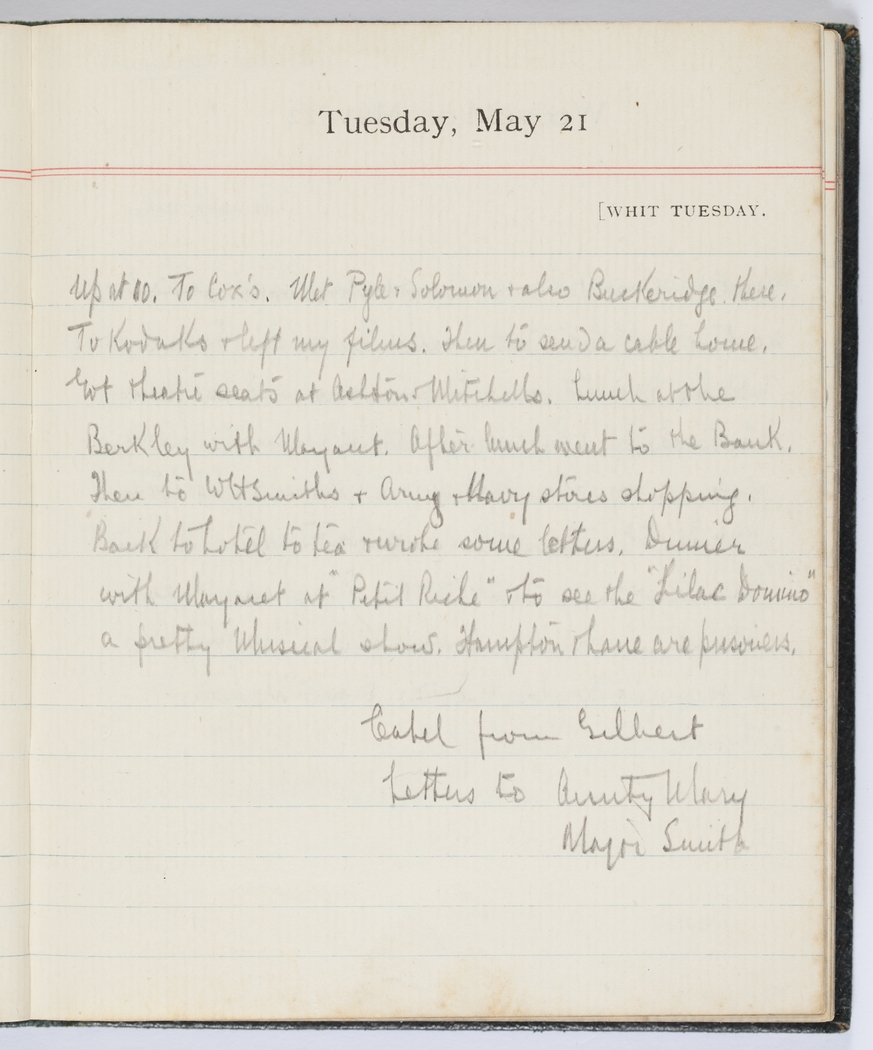 Tuesday, May 21
[WHIT TUESDAY.
Up at 10. To Cox's. Met Pyle + Solomon + also Buckeridge there.
To Kodaks + left my films. Then to send a cable home.
Got theatre seats at Ashton + Mitchells. Lunch at the
Berkley with Margaret. After lunch went to the Bank.
Then to WHSmiths + Army + Navy stores shopping.
Back to hotel to tea + wrote some letters. Dinner
with Margaret at "Petit Riche" + to see the "Lilac Domino"
a pretty Musical show. Hampton + are prisoners.
Cabel from Gilbert
Letters to Aunty Mary
Major Smith